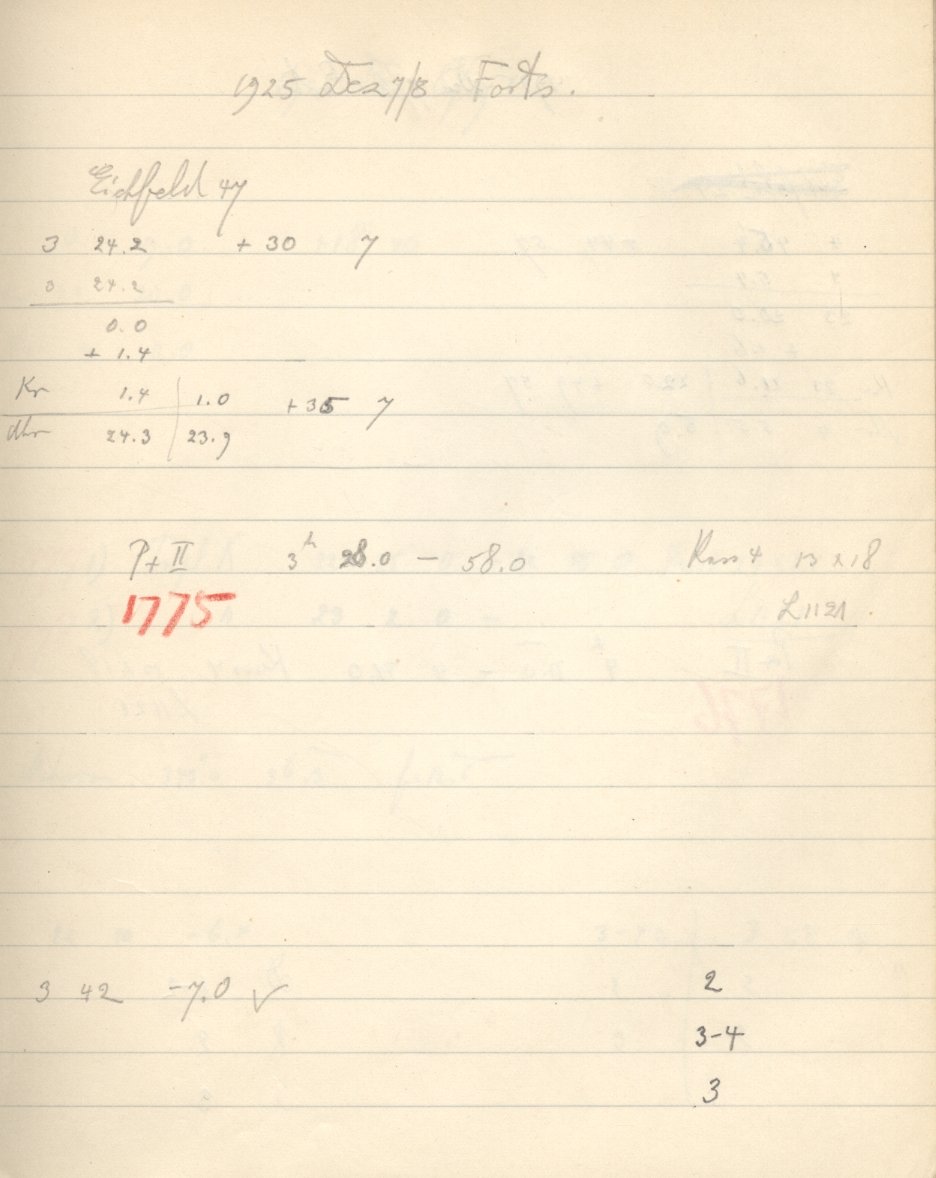 1925 Dez 7/8 Forts.
Eichfeld 47
3 24.2 + 30 7
3 24.2
0.0
+ 1.4
Kr 1.4 | 1.0 + 35 7
Uhr 24.3 | 23.9
Pl II 3h 28.0 — 58.0 Kass 4 13 x 18
1775 L 1121.
3 42 -7.0 ✓ 2
3-4
3